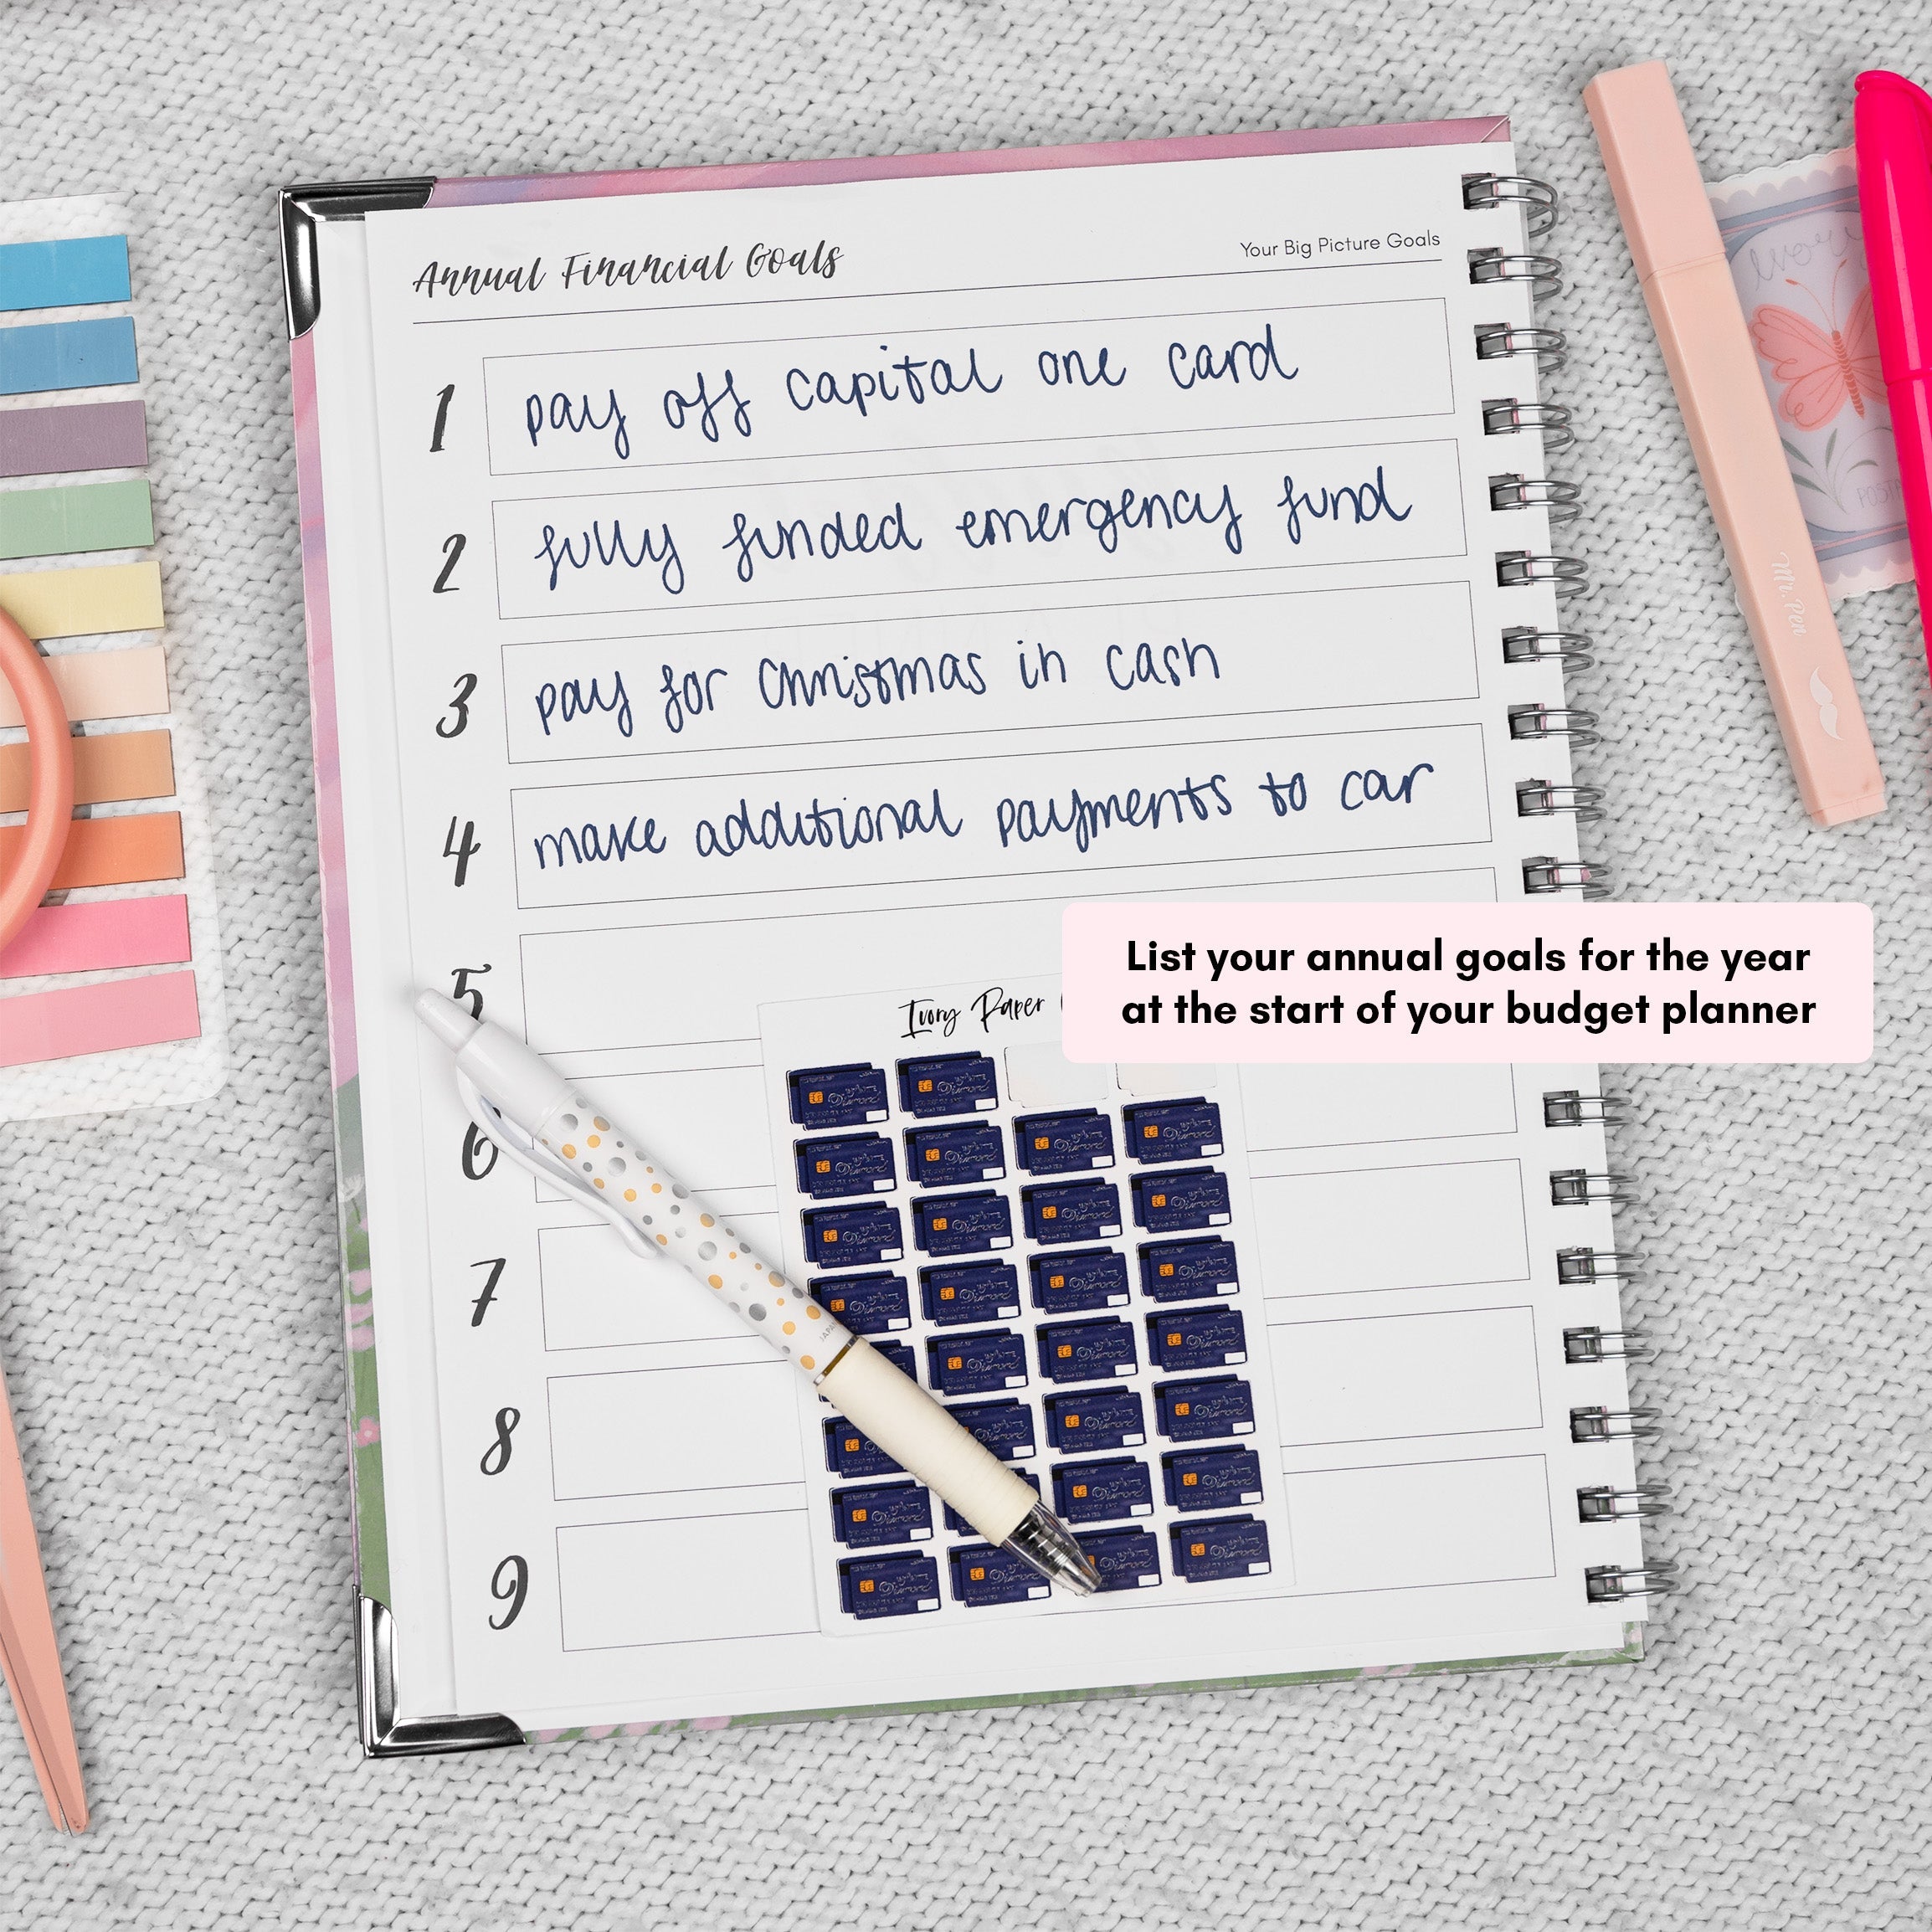 Annual Financial Goals
Your Big Picture Goals
1 pay off capital one card
2 fully funded emergency fund
3 pay for Christmas in cash
4 make additional payments to car
5
List your annual goals for the year
at the start of your budget planner
Ivory Paper
6
7
8
9
Mr. Pen
JAPAN